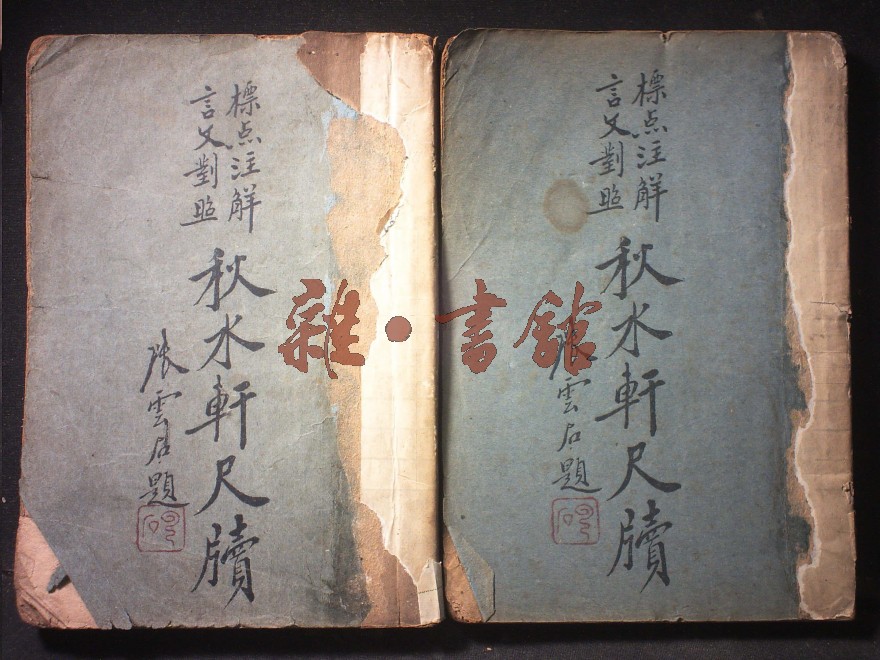 標点注解
言文對照
秋水軒尺牘
張雲石題
標点注解
言文對照
秋水軒尺牘
張雲石題
雜·書館